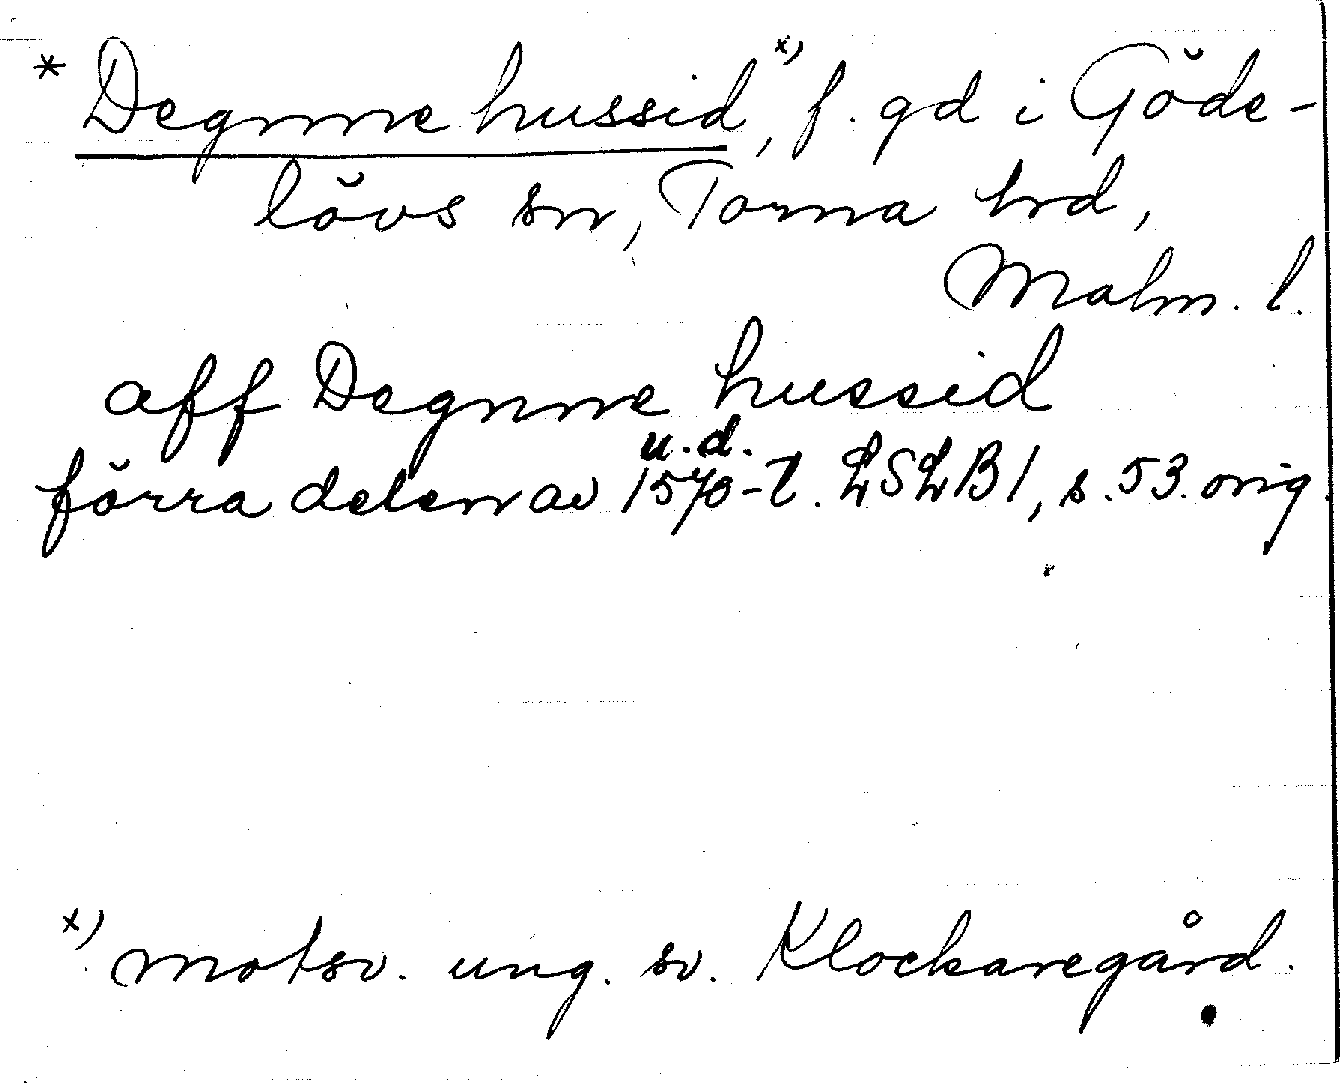 * Degnne hussid x), f. gd i Göde-
lövs sn, Torna hd,
Malm. l.
aff Degnne hussid
u.d.
förra delen av 1570-t. LSLB 1, s. 53. orig.
x) motsv. ung. sv. Klockaregård.